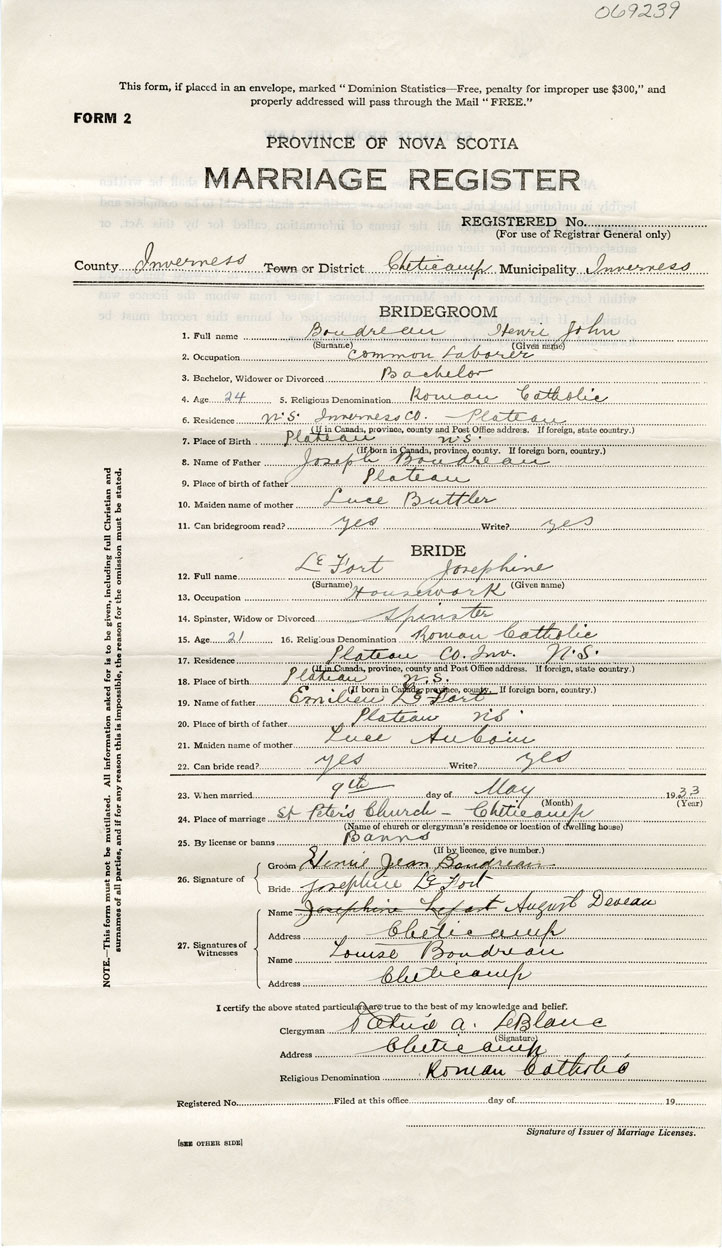 069239
This form, if placed in an envelope, marked "Dominion Statistics—Free, penalty for improper use $300," and
properly addressed will pass through the Mail "FREE."
FORM 2
PROVINCE OF NOVA SCOTIA
MARRIAGE REGISTER
REGISTERED No.
(For use of Registrar General only)
County Inverness Town or District Cheticamp Municipality Inverness
BRIDEGROOM
1. Full name Boudreau Henri John
(Surname) (Given name)
2. Occupation Common Laborer
3. Bachelor, Widower or Divorced Bachelor
4. Age 24 5. Religious Denomination Roman Catholic
6. Residence N.S. Inverness Co. Plateau
(If in Canada, province, county and Post Office address. If foreign, state country.)
7. Place of Birth Plateau N.S.
(If born in Canada, province, county. If foreign born, country.)
8. Name of Father Joseph Boudreau
9. Place of birth of father Plateau
10. Maiden name of mother Luce Buttler
11. Can bridegroom read? yes Write? yes
BRIDE
12. Full name LeFort Josephine
(Surname) (Given name)
13. Occupation Housework
14. Spinster, Widow or Divorced Spinster
15. Age 21 16. Religious Denomination Roman Catholic
17. Residence Plateau Co. Inv. N.S.
(If in Canada, province, county and Post Office address. If foreign, state country.)
18. Place of birth Plateau N.S.
(If born in Canada, province, county. If foreign born, country.)
19. Name of father Emilien LeFort
20. Place of birth of father Plateau NS
21. Maiden name of mother Luce AuCoin
22. Can bride read? yes Write? yes
23. When married 9th day of May 1933
(Month) (Year)
24. Place of marriage St Peter's Church - Cheticamp
(Name of church or clergyman's residence or location of dwelling house)
25. By license or banns Banns
(If by licence, give number.)
26. Signature of
Groom Jean Boudreau
Bride Josephine LeFort
27. Signatures of Witnesses
Name Josephine Lefort August Deveau
Address Cheticamp
Name Louise Boudreau
Address Cheticamp
I certify the above stated particulars are true to the best of my knowledge and belief.
Clergyman A. LeBlanc
(Signature)
Address Cheticamp
Religious Denomination Roman Catholic
Registered No. Filed at this office day of 19
Signature of Issuer of Marriage Licenses.
[SEE OTHER SIDE]
NOTE.—This form must not be mutilated. All information asked for is to be given, including full Christian and
surnames of all parties, and if for any reason this is impossible, the reason for the omission must be stated.